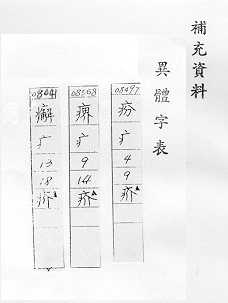 補充資料
異體字表
08497
疒
4
9
疥
08568
疒
9
14
疥
疒
13
18
疥